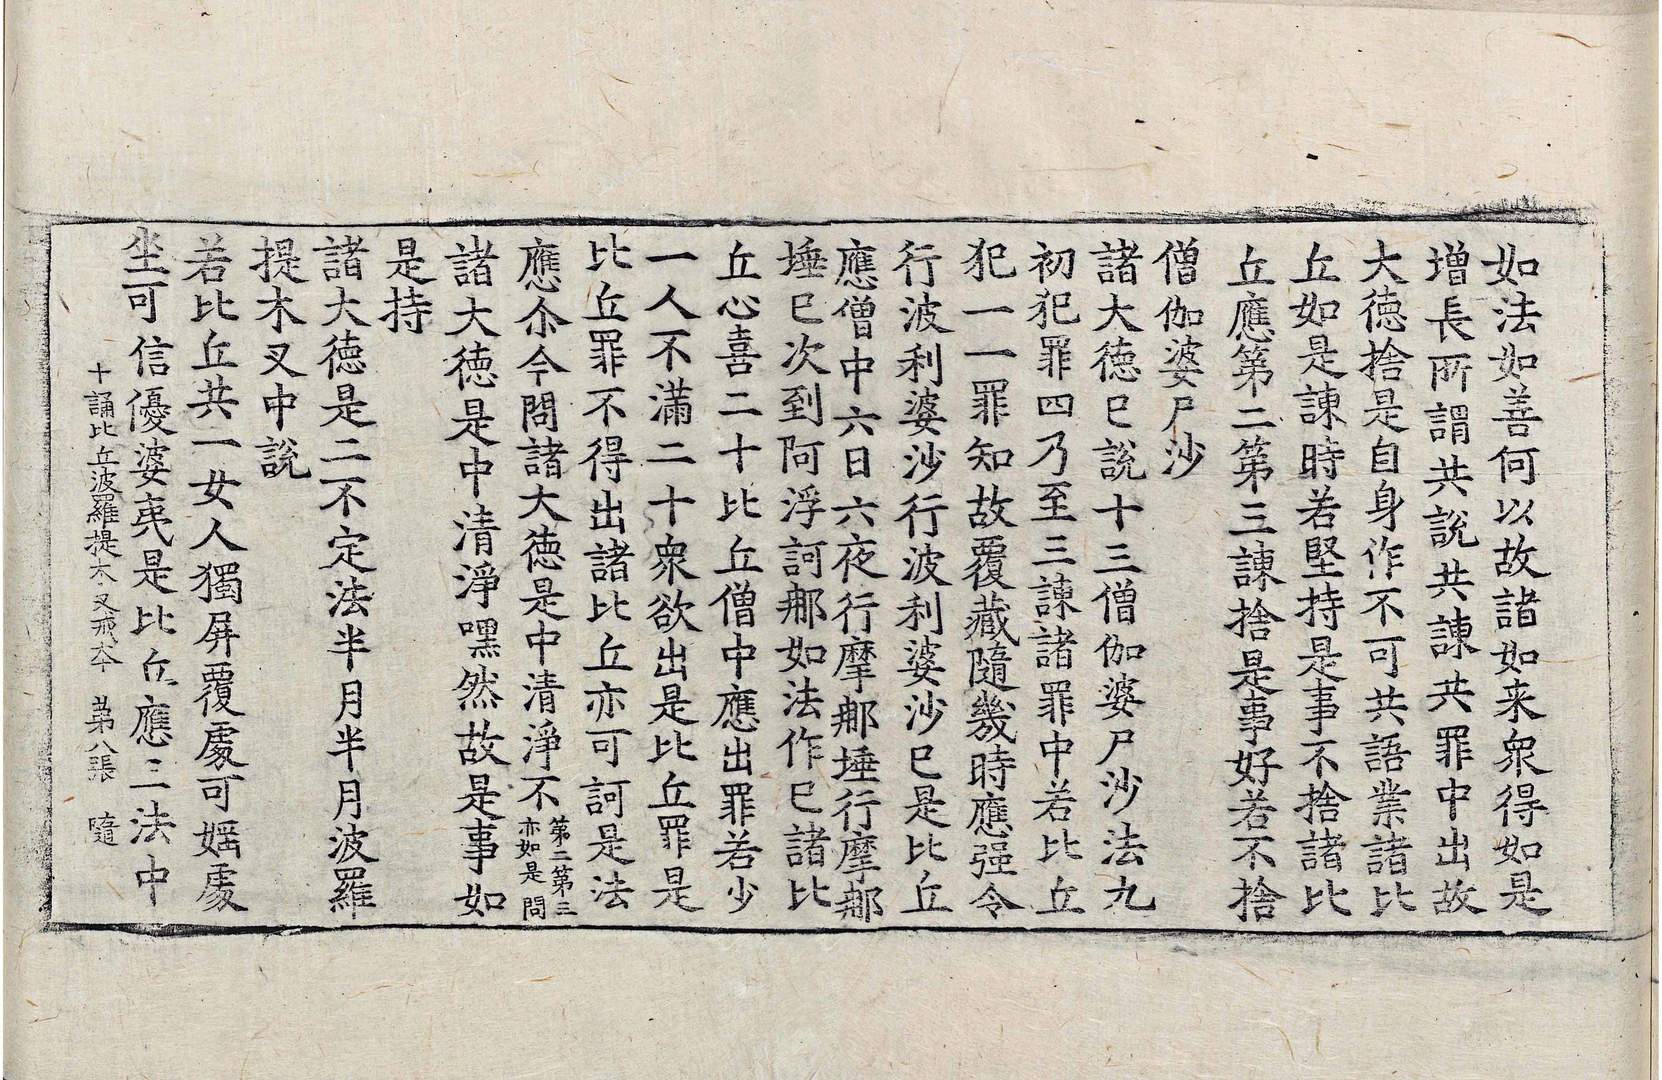 如法如善何以故諸如来衆得如是
增長所謂共說共諫共罪中出故
大德捨是自身作不可共語業諸比
丘如是諫時若堅持是事不捨諸比
丘應第二第三諫捨是事好若不捨
僧伽婆尸沙
諸大德已說十三僧伽婆尸沙法九
初犯罪四乃至三諫諸罪中若比丘
犯一一罪知故覆藏隨幾時應强令
行波利婆沙行波利婆沙已是比丘
應僧中六日六夜行摩那埵行摩那
埵已次到阿浮訶那如法作已諸比
丘心喜二十比丘僧中應出罪若少
一人不滿二十衆欲出是比丘罪是
比丘罪不得出諸比丘亦可訶是法
應尒今問諸大德是中清淨不第二第三亦如是問
諸大德是中清淨嘿然故是事如
是持
諸大德是二不定法半月半月波羅
提木叉中說
若比丘共一女人獨屏覆處可婬處
坐可信優婆夷是比丘應三法中
十誦比丘波羅提木叉戒夲　第八張　隨